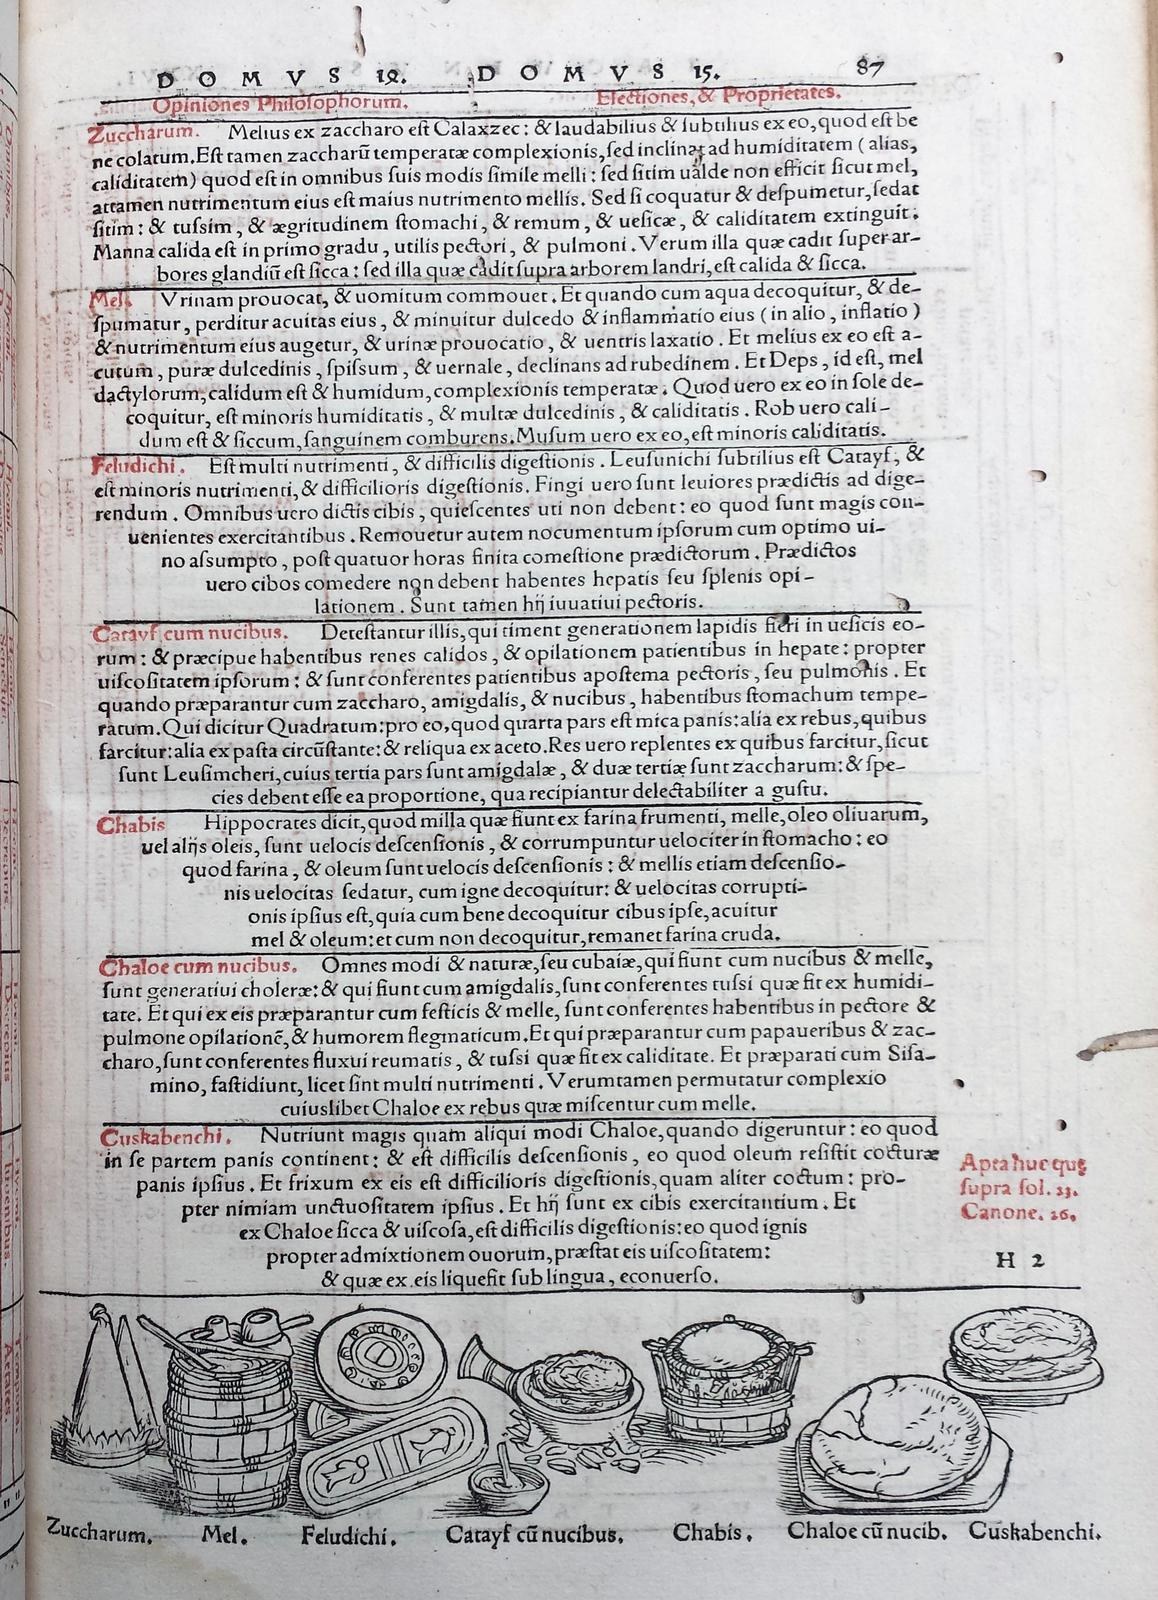 DOMVS 12. DOMVS 15. 87
Opiniones Philosophorum. Electiones, & Proprietates.
Zuccharum. Melius ex zaccharo eſt Calaxzec: & laudabilius & ſubtilius ex eo, quod eſt be
ne colatum. Eſt tamen zaccharũ temperatæ complexionis, ſed inclinat ad humiditatem (alias,
caliditatem) quod eſt in omnibus ſuis modis ſimile melli: ſed ſitim ualde non efficit ſicut mel,
attamen nutrimentum eius eſt maius nutrimento mellis. Sed ſi coquatur & deſpumetur, ſedat
ſitim: & tuſſim, & ægritudinem ſtomachi, & renum, & ueſicæ, & caliditatem extinguit.
Manna calida eſt in primo gradu, utilis pectori, & pulmoni. Verum illa quæ cadit ſuper ar-
bores glandiũ eſt ſicca: ſed illa quæ cadit ſupra arborem landri, eſt calida & ſicca.
Mel. Vrinam prouocat, & uomitum commouet. Et quando cum aqua decoquitur, & de-
ſpumatur, perditur acuitas eius, & minuitur dulcedo & inflammatio eius (in alio, inflatio)
& nutrimentum eius augetur, & urinæ prouocatio, & uentris laxatio. Et melius ex eo eſt a-
cutum, puræ dulcedinis, ſpiſſum, & uernale, declinans ad rubedinem. Et Deps, id eſt, mel
dactylorum, calidum eſt & humidum, complexionis temperatæ. Quod uero ex eo in ſole de-
coquitur, eſt minoris humiditatis, & multæ dulcedinis, & caliditatis. Rob uero cali-
dum eſt & ſiccum, ſanguinem comburens. Muſum uero ex eo, eſt minoris caliditatis.
Feludichi. Eſt multi nutrimenti, & difficilis digeſtionis. Leuſunichi ſubtilius eſt Catayf, &
eſt minoris nutrimenti, & difficilioris digeſtionis. Fingi uero ſunt leuiores prædictis ad dige-
rendum. Omnibus uero dictis cibis, quieſcentes uti non debent: eo quod ſunt magis con-
uenientes exercitantibus. Remouetur autem nocumentum ipſorum cum optimo ui-
no aſſumpto, poſt quatuor horas finita comeſtione prædictorum. Prædictos
uero cibos comedere non debent habentes hepatis ſeu ſplenis opi-
lationem. Sunt tamen hij iuuatiui pectoris.
Catayf cum nucibus. Deteſtantur illis, qui timent generationem lapidis fieri in ueſicis eo-
rum: & præcipue habentibus renes calidos, & opilationem patientibus in hepate: propter
uiſcoſitatem ipſorum: & ſunt conferentes patientibus apoſtema pectoris, ſeu pulmonis. Et
quando præparantur cum zaccharo, amigdalis, & nucibus, habentibus ſtomachum tempe-
ratum. Qui dicitur Quadratum: pro eo, quod quarta pars eſt mica panis: alia ex rebus, quibus
farcitur: alia ex paſta circũſtante: & reliqua ex aceto. Res uero replentes ex quibus farcitur, ſicut
ſunt Leuſimcheri, cuius tertia pars ſunt amigdalæ, & duæ tertiæ ſunt zaccharum: & ſpe-
cies debent eſſe ea proportione, qua recipiantur delectabiliter a guſtu.
Chabis Hippocrates dicit, quod milla quæ fiunt ex farina frumenti, melle, oleo oliuarum,
uel alijs oleis, ſunt uelocis deſcenſionis, & corrumpuntur uelociter in ſtomacho: eo
quod farina, & oleum ſunt uelocis deſcenſionis: & mellis etiam deſcenſio-
nis uelocitas ſedatur, cum igne decoquitur: & uelocitas corrupti-
onis ipſius eſt, quia cum bene decoquitur cibus ipſe, acuitur
mel & oleum: et cum non decoquitur, remanet farina cruda.
Chaloe cum nucibus. Omnes modi & naturæ, ſeu cubaiæ, qui fiunt cum nucibus & melle,
ſunt generatiui choleræ: & qui fiunt cum amigdalis, ſunt conferentes tuſſi quæ fit ex humidi-
tate. Et qui ex eis præparantur cum feſticis & melle, ſunt conferentes habentibus in pectore &
pulmone opilationẽ, & humorem flegmaticum. Et qui præparantur cum papaueribus & zac-
charo, ſunt conferentes fluxui reumatis, & tuſſi quæ fit ex caliditate. Et præparati cum Siſa-
mino, faſtidiunt, licet ſint multi nutrimenti. Verumtamen permutatur complexio
cuiuslibet Chaloe ex rebus quæ miſcentur cum melle.
Cuskabenchi. Nutriunt magis quam aliqui modi Chaloe, quando digeruntur: eo quod
in ſe partem panis continent: & eſt difficilis deſcenſionis, eo quod oleum reſiſtit cocturæ
panis ipſius. Et frixum ex eis eſt difficilioris digeſtionis, quam aliter coctum: pro-
pter nimiam unctuoſitatem ipſius. Et hij ſunt ex cibis exercitantium. Et
ex Chaloe ſicca & uiſcoſa, eſt difficilis digeſtionis: eo quod ignis
propter admixtionem ouorum, præſtat eis uiſcoſitatem:
& quæ ex eis liquefit ſub lingua, econuerſo.
Apta huc quę
ſupra fol. 33.
Canone. 26.
H 2
Zuccharum. Mel. Feludichi. Catayf cũ nucibus. Chabis. Chaloe cũ nucib. Cuskabenchi.